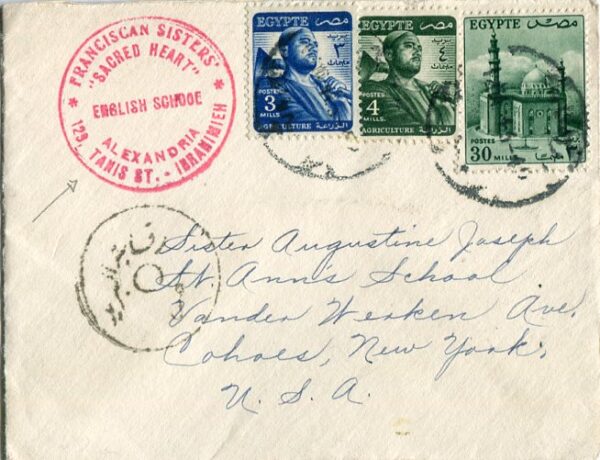 FRANCISCAN SISTERS'
"SACRED HEART"
ENGLISH SCHOOL
ALEXANDRIA
* 123, TANIS ST. - IBRAHIMIEH *
EGYPTE مصر
٣
مليمات
POSTES
3
MILLS.
AGRICULTURE الزراعة
EGYPTE مصر
٤
مليمات
POSTES
4
MILLS.
AGRICULTURE الزراعة
EGYPTE مصر
POSTES
30 MILLS
Sister Augustine Joseph
St Ann's School
Vander Werken Ave.
Cohoes, New York,
U. S. A.